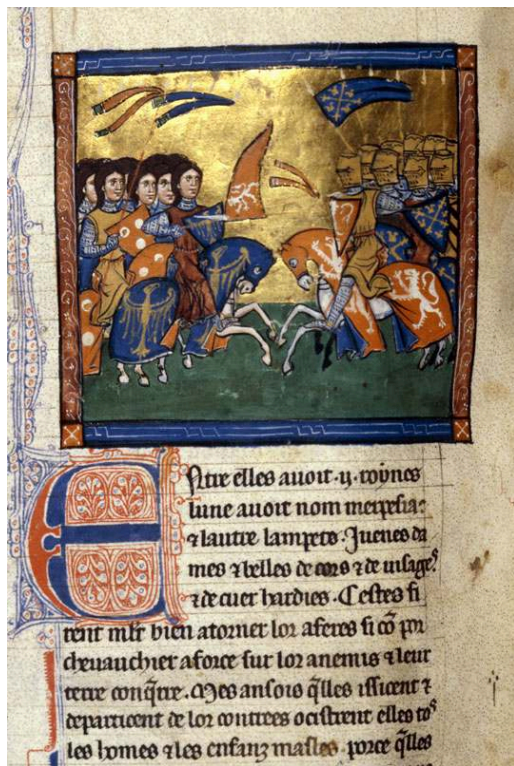 Entre elles auoit .ij. roynes
lune auoit nom merpesia:
⁊ lautre lampeto. Juenes da
mes ⁊ belles de cors ⁊ de uisage.
⁊ de cuer hardies. Cestes fi
rent mlt bien atorner lor aferes si cō por
cheuauchier a force sur lor anemis ⁊ leur
terre conq̄rre. Mes ansois q̄lles ississent ⁊
departicent de lor contrees ocistrent elles to⁹
les homes ⁊ les enfanz masles. porce q̄lles